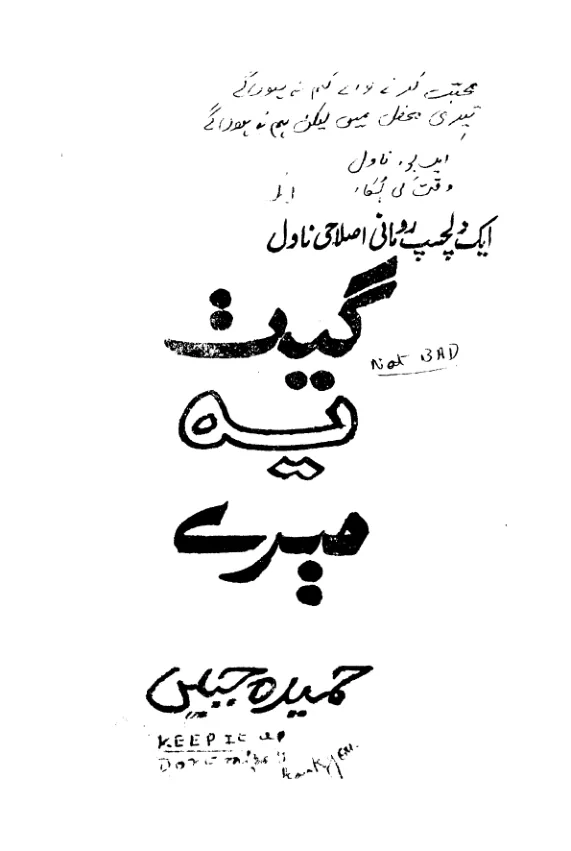 محبت کرنے والے کم نہ ہوں گے
تیری محفل میں لیکن ہم نہ ہوں گے
ناول
وقت کی پکار
ایک دلچسپ رومانی اصلاحی ناول
گیت
NOT BAD
یہ
میرے
حمیدہ جبیں
KEEP IT UP
DONT